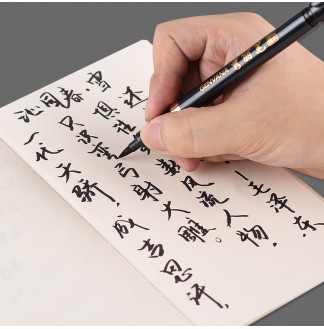 沁园春·雪
一代天骄，成吉思汗，
只识弯弓射大雕。
俱往 数风流人物，
还
—毛泽东
GENVANA